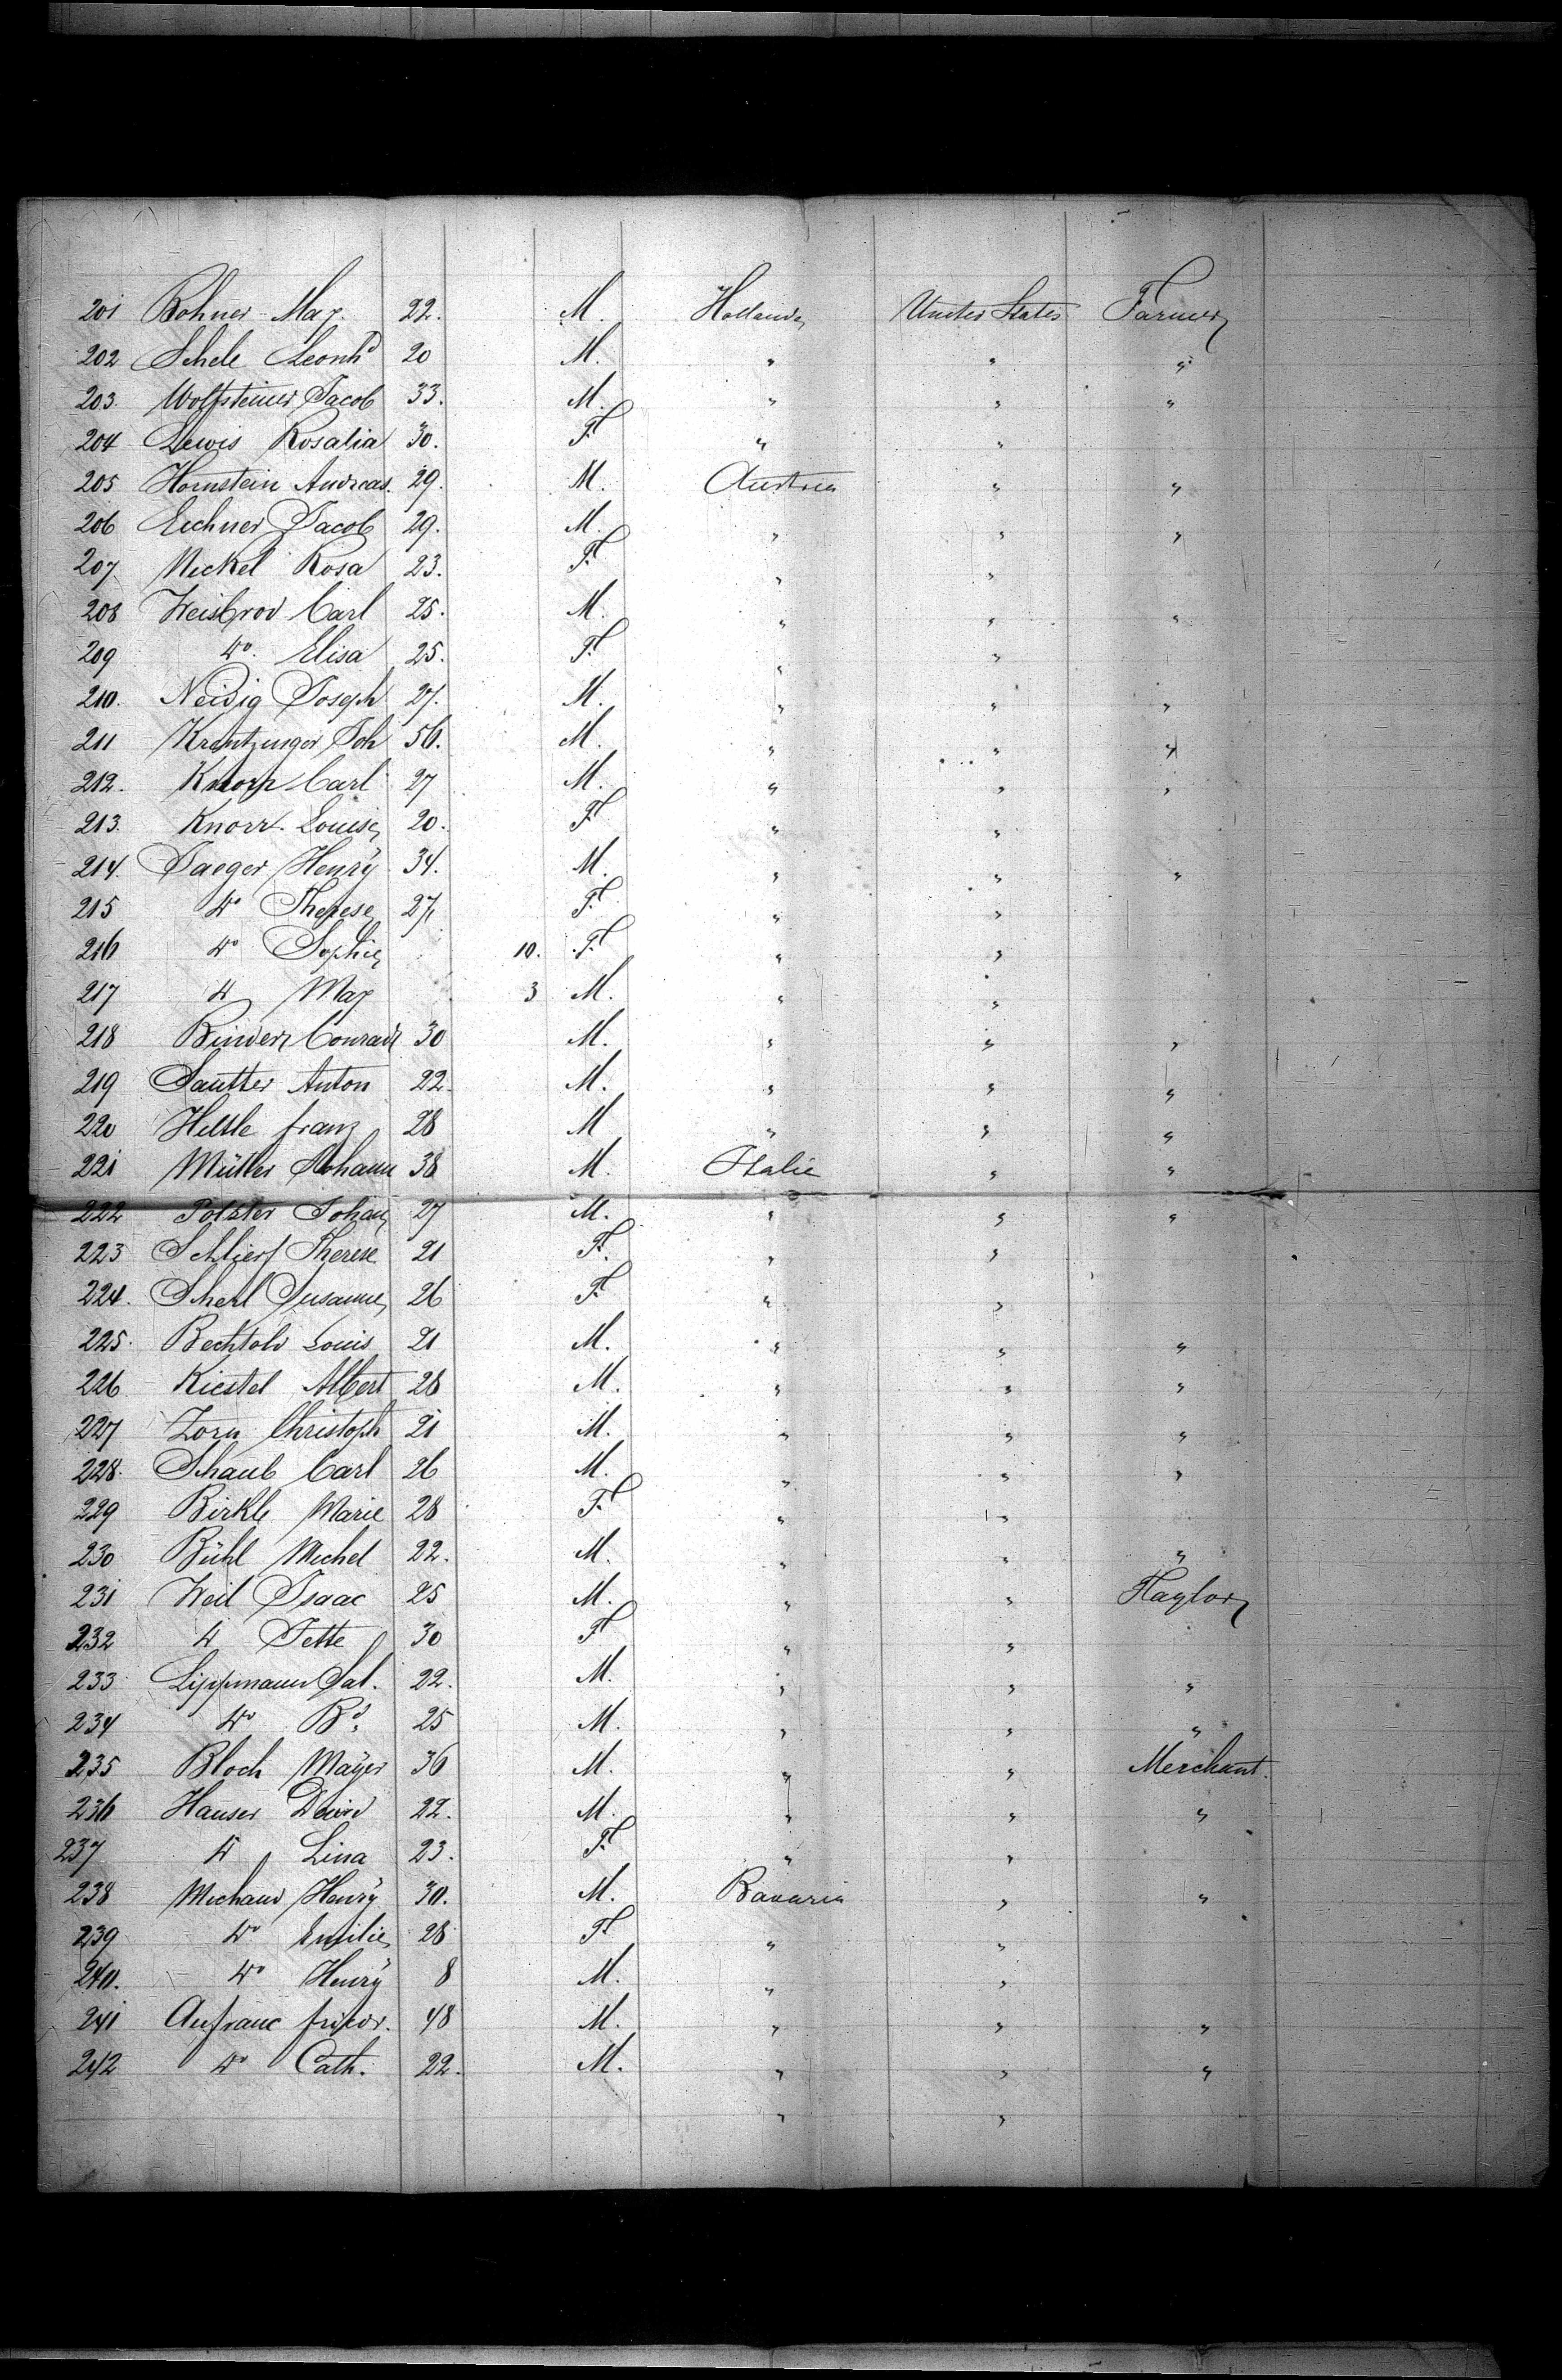 201 Bohner Max 22. M. Holland United States Farmer
202 Schele Leonhd 20 M. " " "
203. Wolfsteiner Jacob 33. M. " " "
204 Lewis Rosalia 30. F. " "
205 Hornstein Andreas. 29. M. Austria " "
206 Eichner Jacob 29. M. " " "
207. Meckel Rosa 23. F. " "
208 Weisbrod Carl 25. M. " " "
209 do. Elisa 25. F. " "
210. Neidig Joseph 27. M. " " "
211 Krentzinger Joh 56. M. " " "
212. Knorr Carl 27 M. " " "
213. Knorr Louise 20. F. " "
214. Jaeger Henry 34. M. " " "
215 do Therese 27. F. " "
216 do Sophie 10. F. " "
217 do Max 3 M. " "
218 Binder Conrad 30 M. " " "
219 Sautter Anton 22. M. " " "
220 Heltle franz 28 M " " "
221 Müller Johann 38 M. Italie " "
222 Polster Johan 27 M. " " "
223 Schlierf Therese 21 F. " "
224. Scherl Susanne 26 F. " "
225. Bechtold Louis 21 M. " " "
226 Kiestel Albert 28 M. " " "
227 Zorn Christoph 21 M. " " "
228. Schaub Carl 26 M. " " "
229 Birkle Marie 28 F. " "
230 Bühl Michel 22. M. " " "
231 Weil Isaac 25 M. " " Taylor
232 do Jette 30 F. " "
233 Lippmann Sal. 22. M. " " "
234 do Bd. 25 M. " " "
235 Bloch Mayer 36 M. " " Merchant.
236 Hauser David 22. M. " " "
237 do Lina 23. F. " "
238 Michaud Henry 30. M. Bavaria " "
239 do Emilie 28 F. " "
240. do Henry 8 M. " "
241 Aufranc friedr. 48 M. " " "
242 do Cath. 22. M. " " "
" "